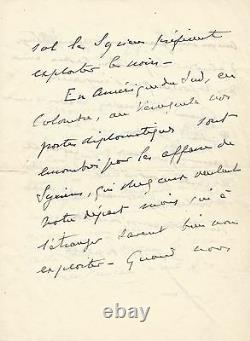 sol les Syriens préfèrent
exploiter les noirs —
En Amérique du Sud, en
Colombie, au Vénézuela nos
postes diplomatiques sont
encombrés par les affaires de
Syriens, qui chez eux veulent
notre départ mais qui à
l'étranger savent bien nous
exploiter — Quand nous